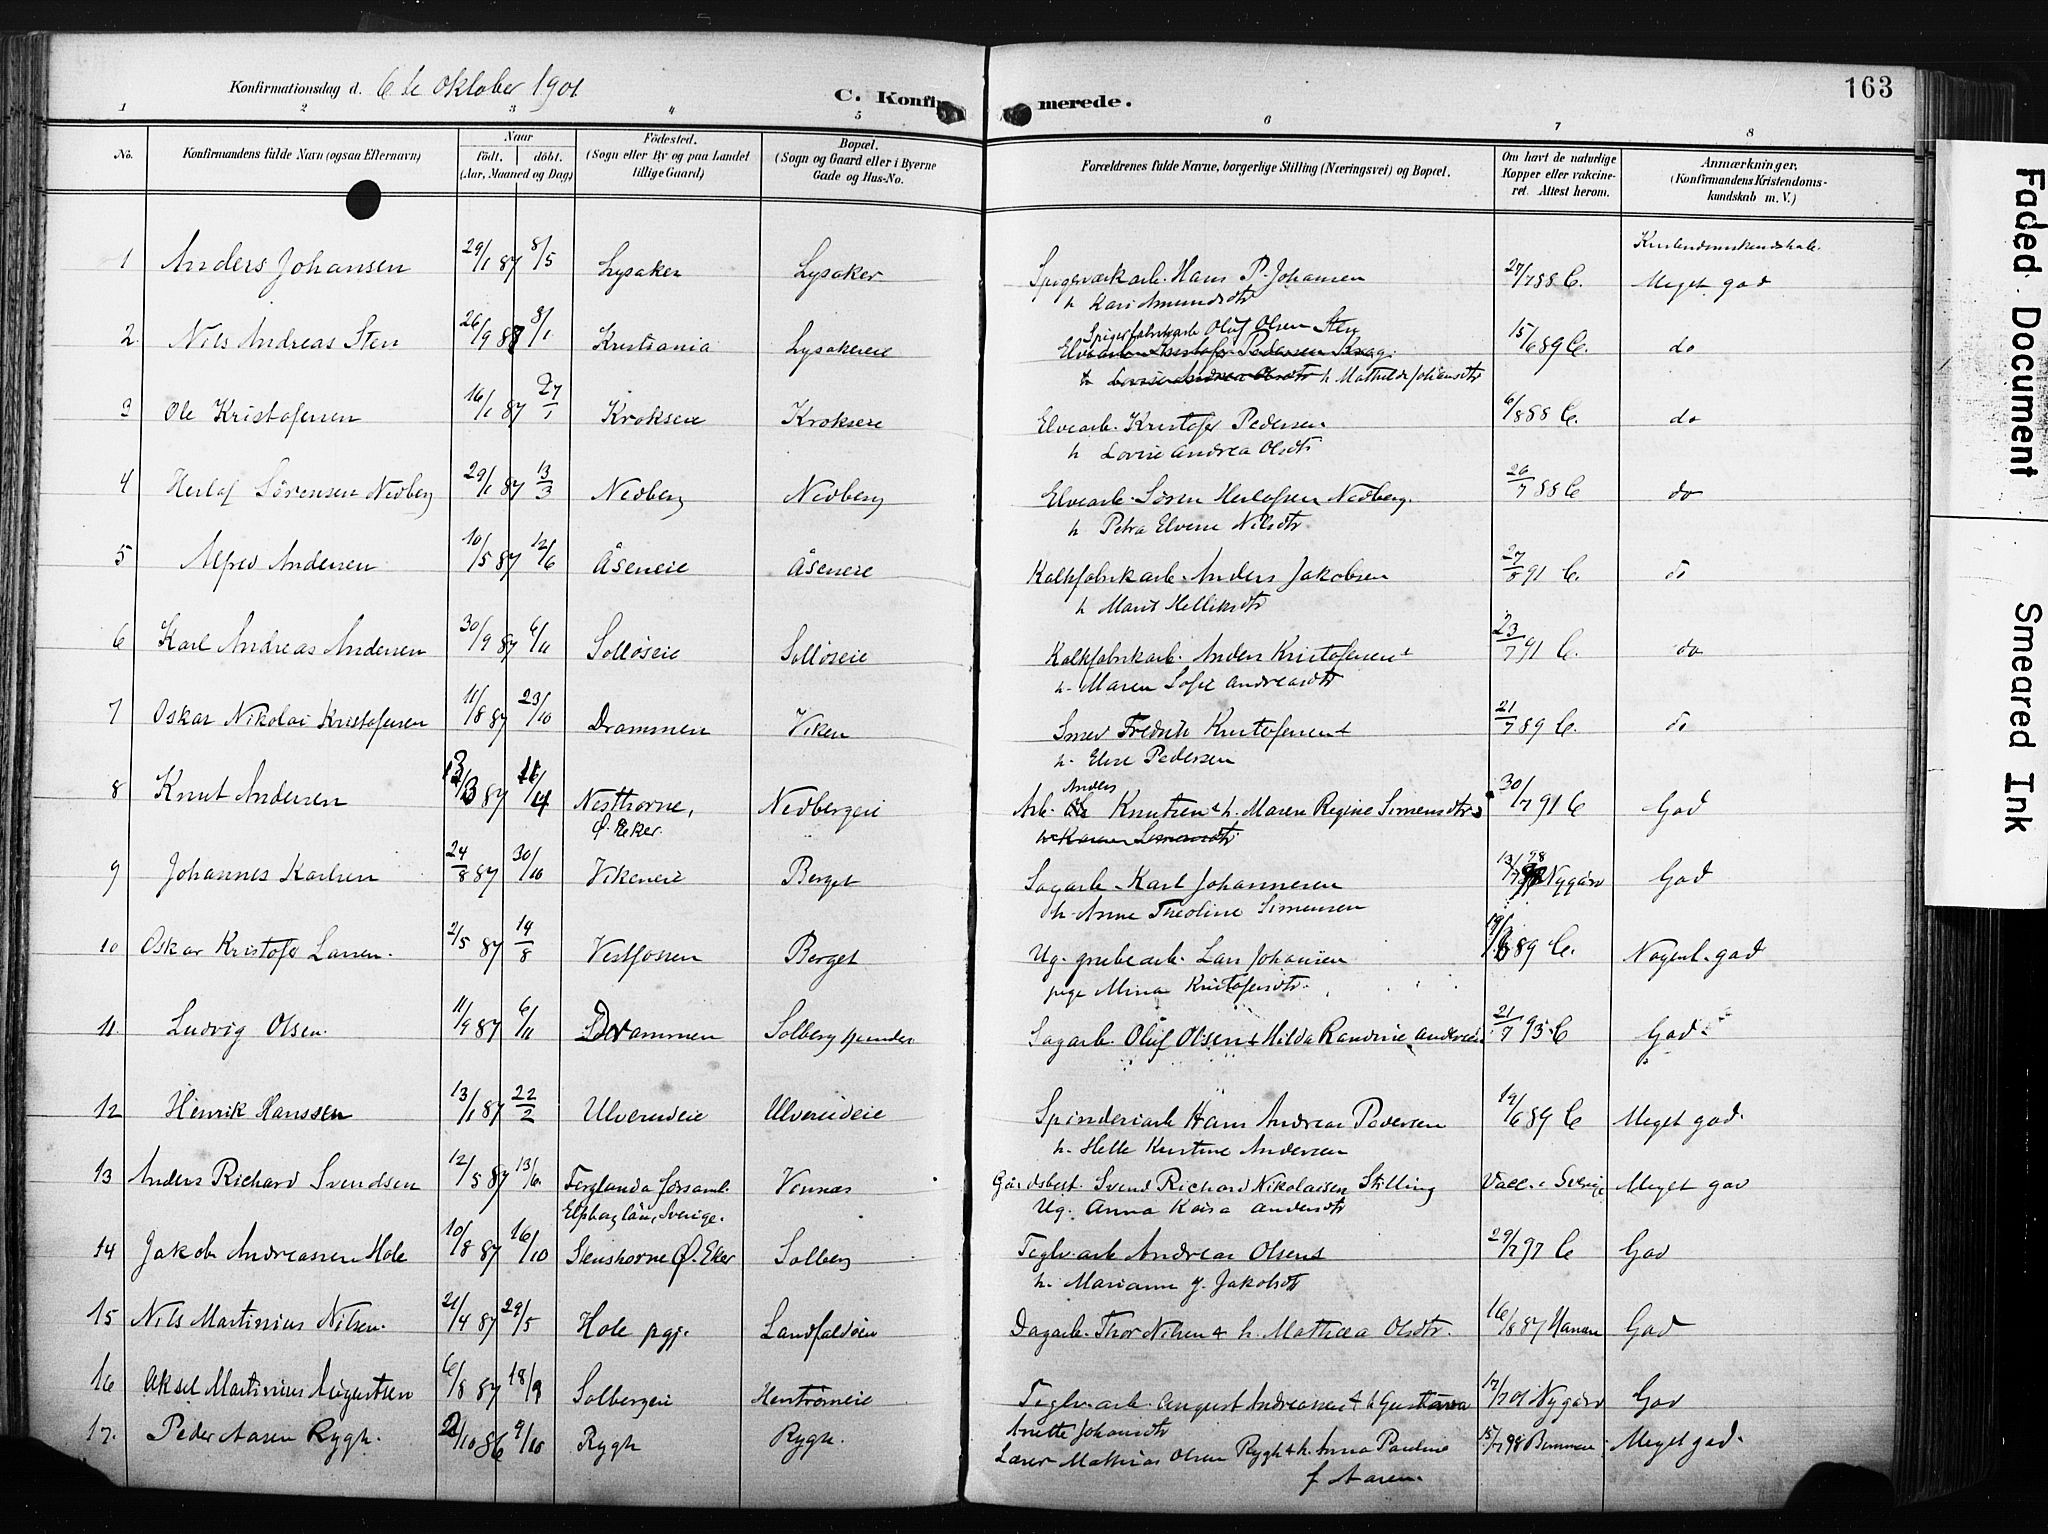 163
Konfirmationsdag d. 6te Oktober 1901.
C. Konfirmerede.
1 2 3 4 5 6 7 8
No.
Konfirmandens fulde Navn (ogsaa Efternavn)
Naar
født. døbt.
(Aar, Maaned og Dag)
Fødested.
(Sogn eller By og paa Landet
tillige Gaard)
Bopæl.
(Sogn og Gaard eller i Byerne
Gade og Hus-No.
Forældrenes fulde Navne, borgerlige Stilling (Næringsvei) og Bopæl.
Om havt de naturlige
Kopper eller vakcine-
ret. Attest herom.
Anmærkninger,
(Konfirmandens Kristendoms-
kundskab m. V.)
Kristendomskundskab.
1 Anders Johansen 29/1 87 8/5 Lysaker Lysaker Spigerværkarb. Hans P. Johansen 27/7 88 C. Meget god
h. Kari Amundsdtr
2 Nils Andreas Sten 26/9 87 8/1 Kristiania Lysakereie Spigerfabrikarb Oluf Olsen Sten 15/6 89 C. do
Elvearb Kristofer Pedersen
h Lovise Andrea Olsdtr h. Mathilde Johansdtr
3 Ole Kristofersen 16/1 87 27/1 Krokseie Krokseie Elvearb. Kristofer Pedersen 6/8 88 C. do
h Lovise Andrea Olsdtr
4 Herlof Sørensen Nedberg 29/1 87 13/3 Nedberg Nedberg Elvearb. Søren Herlofsen Nedberg. 26/7 88 C do
h Petra Elvine Nilsdtr.
5 Alfred Andersen 10/5 87 12/6 Åseneie Åseneie Kalkfabrikarb. Anders Jakobsen 27/8 91 C. do
h Marit Helliksdtr
6 Karl Andreas Andersen 30/9 87 6/11 Solløseie Solløseie Kalkfabrikarb. Anders Kristofersen & 23/7 91 C. do
h. Maren Sofie Andreasdtr
7 Oskar Nikolai Kristofersen 11/8 87 23/10 Drammen Viken Smed Fredrik Kristofersen & 21/7 89 C. do
h. Elise Pedersen
8 Knut Andersen 87 Nesthorne, Nedbergeie Arb. Anders Knutsen & h. Maren Regine Simensdtr 30/7 91 C God
Ø. Eker. h Karen Simensdtr
9 Johannes Karlsen 24/8 87 30/10 Vikeneie Berget Sagarb. Karl Johannesen 13/7 98 Nygård God
h. Anne Theoline Simensen
10 Oskar Kristofer Larsen. 2/5 87 14/8 Vestfossen Berget Ug. grubearb. Lars Johansen 19/6 89 C. Nogenl. god
pige Mina Kristofersdtr.
11 Ludvig Olsen. 11/9 87 6/11 Drammen Solberg spinderi Sagarb. Oluf Olsen & Hilda Randine Andersen 21/7 95 C God
12 Henrik Hanssen 13/1 87 22/2 Ulverudeie Ulverudeie Spinderiarb Hans Andreas Pedersen 19/6 89 C Meget god.
h. Helle Kristine Andersen
13 Anders Richard Svendsen 12/5 87 13/6 Ferglanda församl. Vennas Gårdsbest. Svend Richard Nikolaisen Stilling Vacc. i Sverige Meget god
Elfsborg län, Sverige. Ug. Anna Kaisa Andersdtr
14 Jakob Andreassen Hole 10/8 87 16/10 Stenshorne Ø. Eker Solberg Teglv.arb Andreas Olsen & 29/7 97 C God
h. Marianne J. Jakobsdtr
15 Nils Martinius Nilsen. 21/4 87 29/5 Hole pgj. Landfaldeie Dagarb. Thor Nilsen & h. Mathea Olsdtr. 16/8 87 God
16 Aksel Martinius Augustsen 6/8 87 18/9 Solbergeie Henstrømeie Teglv.arb. August Andreassen & h Gustava 17/7 01 Nygård God
Anette Johansdtr
17. Peder Aasen Rygh. 10 86 9/10 Rygh Rygh. Lærer Mathias Olsen Rygh & h. Anna Pauline 15/7 98 Meget god.
f. Aasen.
Faded Document
Smeared Ink